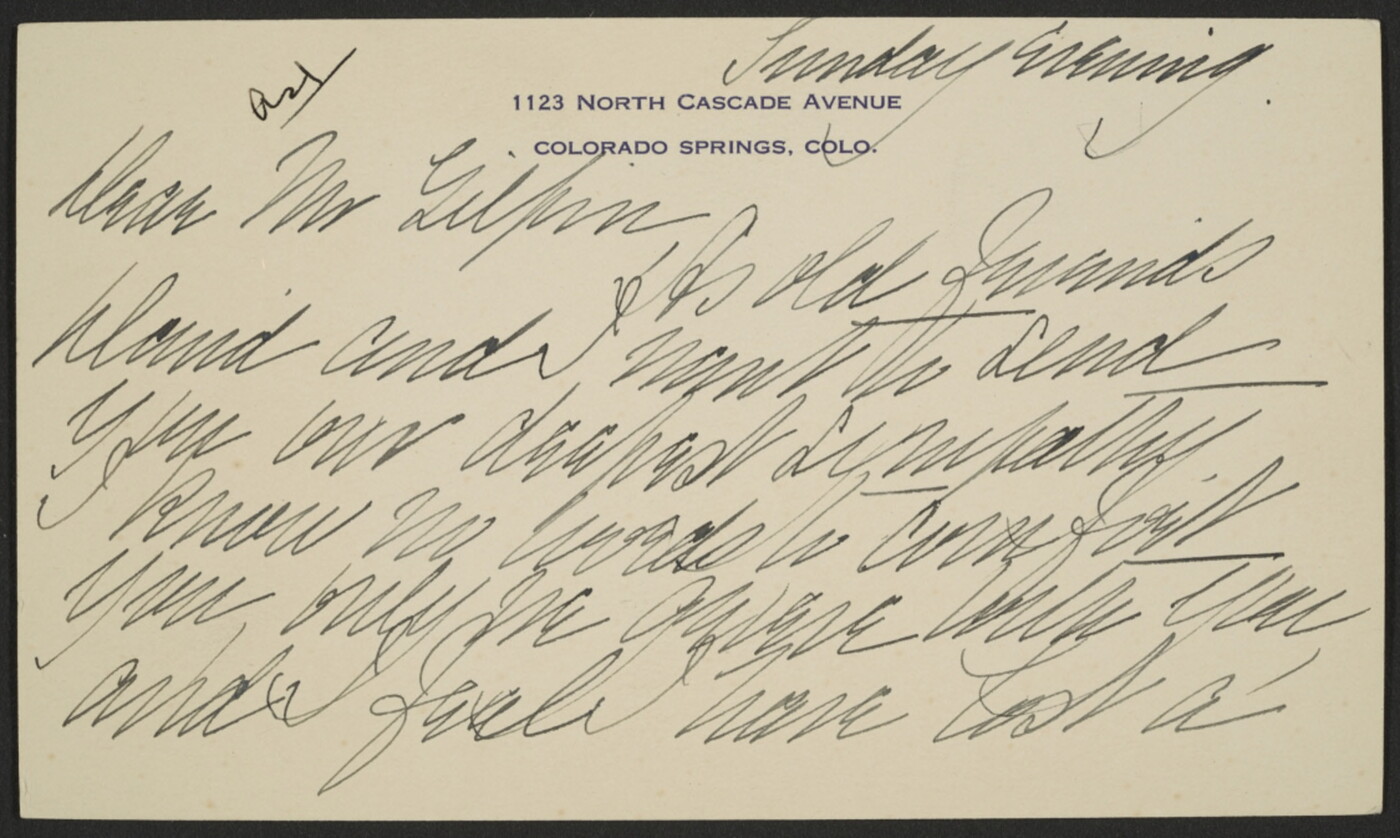 Sunday Evening.
1123 North Cascade Avenue
Colorado Springs, Colo.
Dear Mr Gilpin
As old friends
David and I want to send
you our deepest sympathy
I know no words to comfort
you, only we grieve with you
and I feel I have lost a